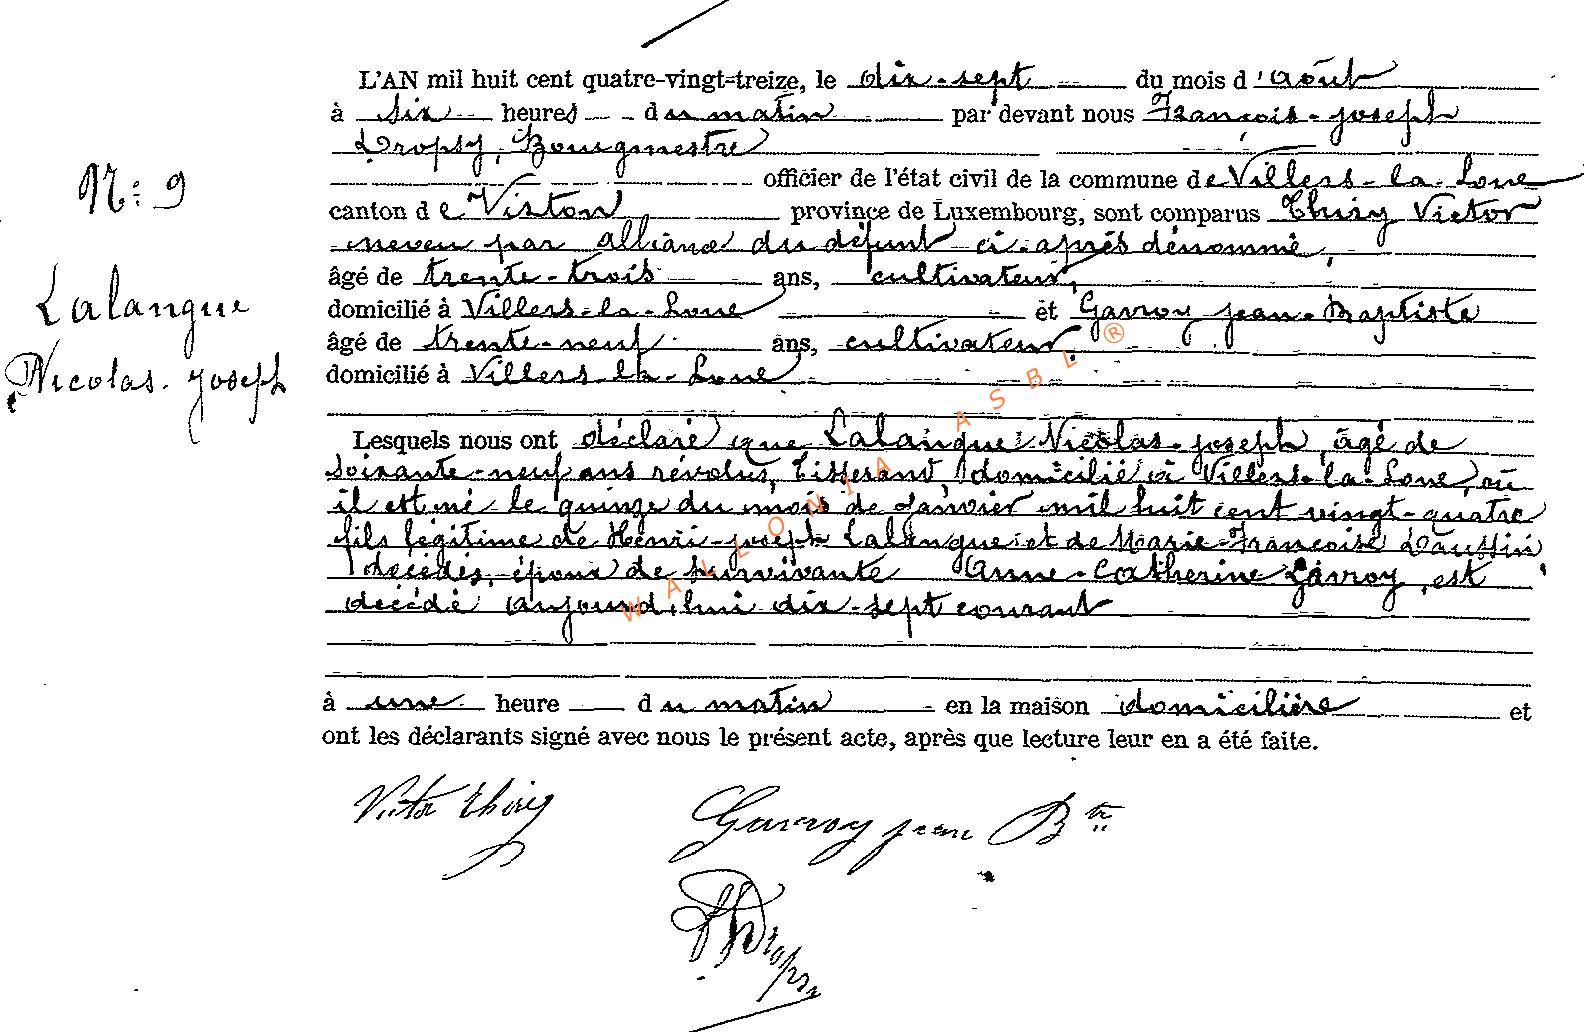 L'AN mil huit cent quatre-vingt-treize, le dix-sept du mois d'août
à six heures du matin par devant nous François-joseph
Dropsy, Bourgmestre
officier de l'état civil de la commune de Villers-la-Loue
canton de Virton province de Luxembourg, sont comparus Thiry Victor
neveu par alliance du défunt ci-après dénommé,
âgé de trente-trois ans, cultivateur,
domicilié à Villers-la-Loue et Gavroy jean-Baptiste
âgé de trente-neuf ans, cultivateur,
domicilié à Villers-la-Loue
Lesquels nous ont déclaré que Lalangue Nicolas-joseph, âgé de
soixante-neuf ans révolus, tisserand, domicilié à Villers-la-Loue, où
il est né le quinze du mois de janvier mil huit cent vingt-quatre
fils légitime de Henri-joseph Lalangue et de Marie-Françoise Daussin
décédés, époux de survivante Anne-Catherine Gavroy, est
décédé aujourd'hui dix-sept courant
à une heure du matin en la maison domicilière et
ont les déclarants signé avec nous le présent acte, après que lecture leur en a été faite.
N: 9
Lalangue
Nicolas-joseph
Victor Thiry
Gavroy jean Bte
Dropsy
WALLONIA ASBL ®